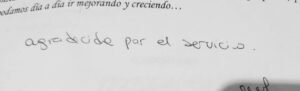 podamos día a día ir mejorando y creciendo...
agradecida por el servicio.